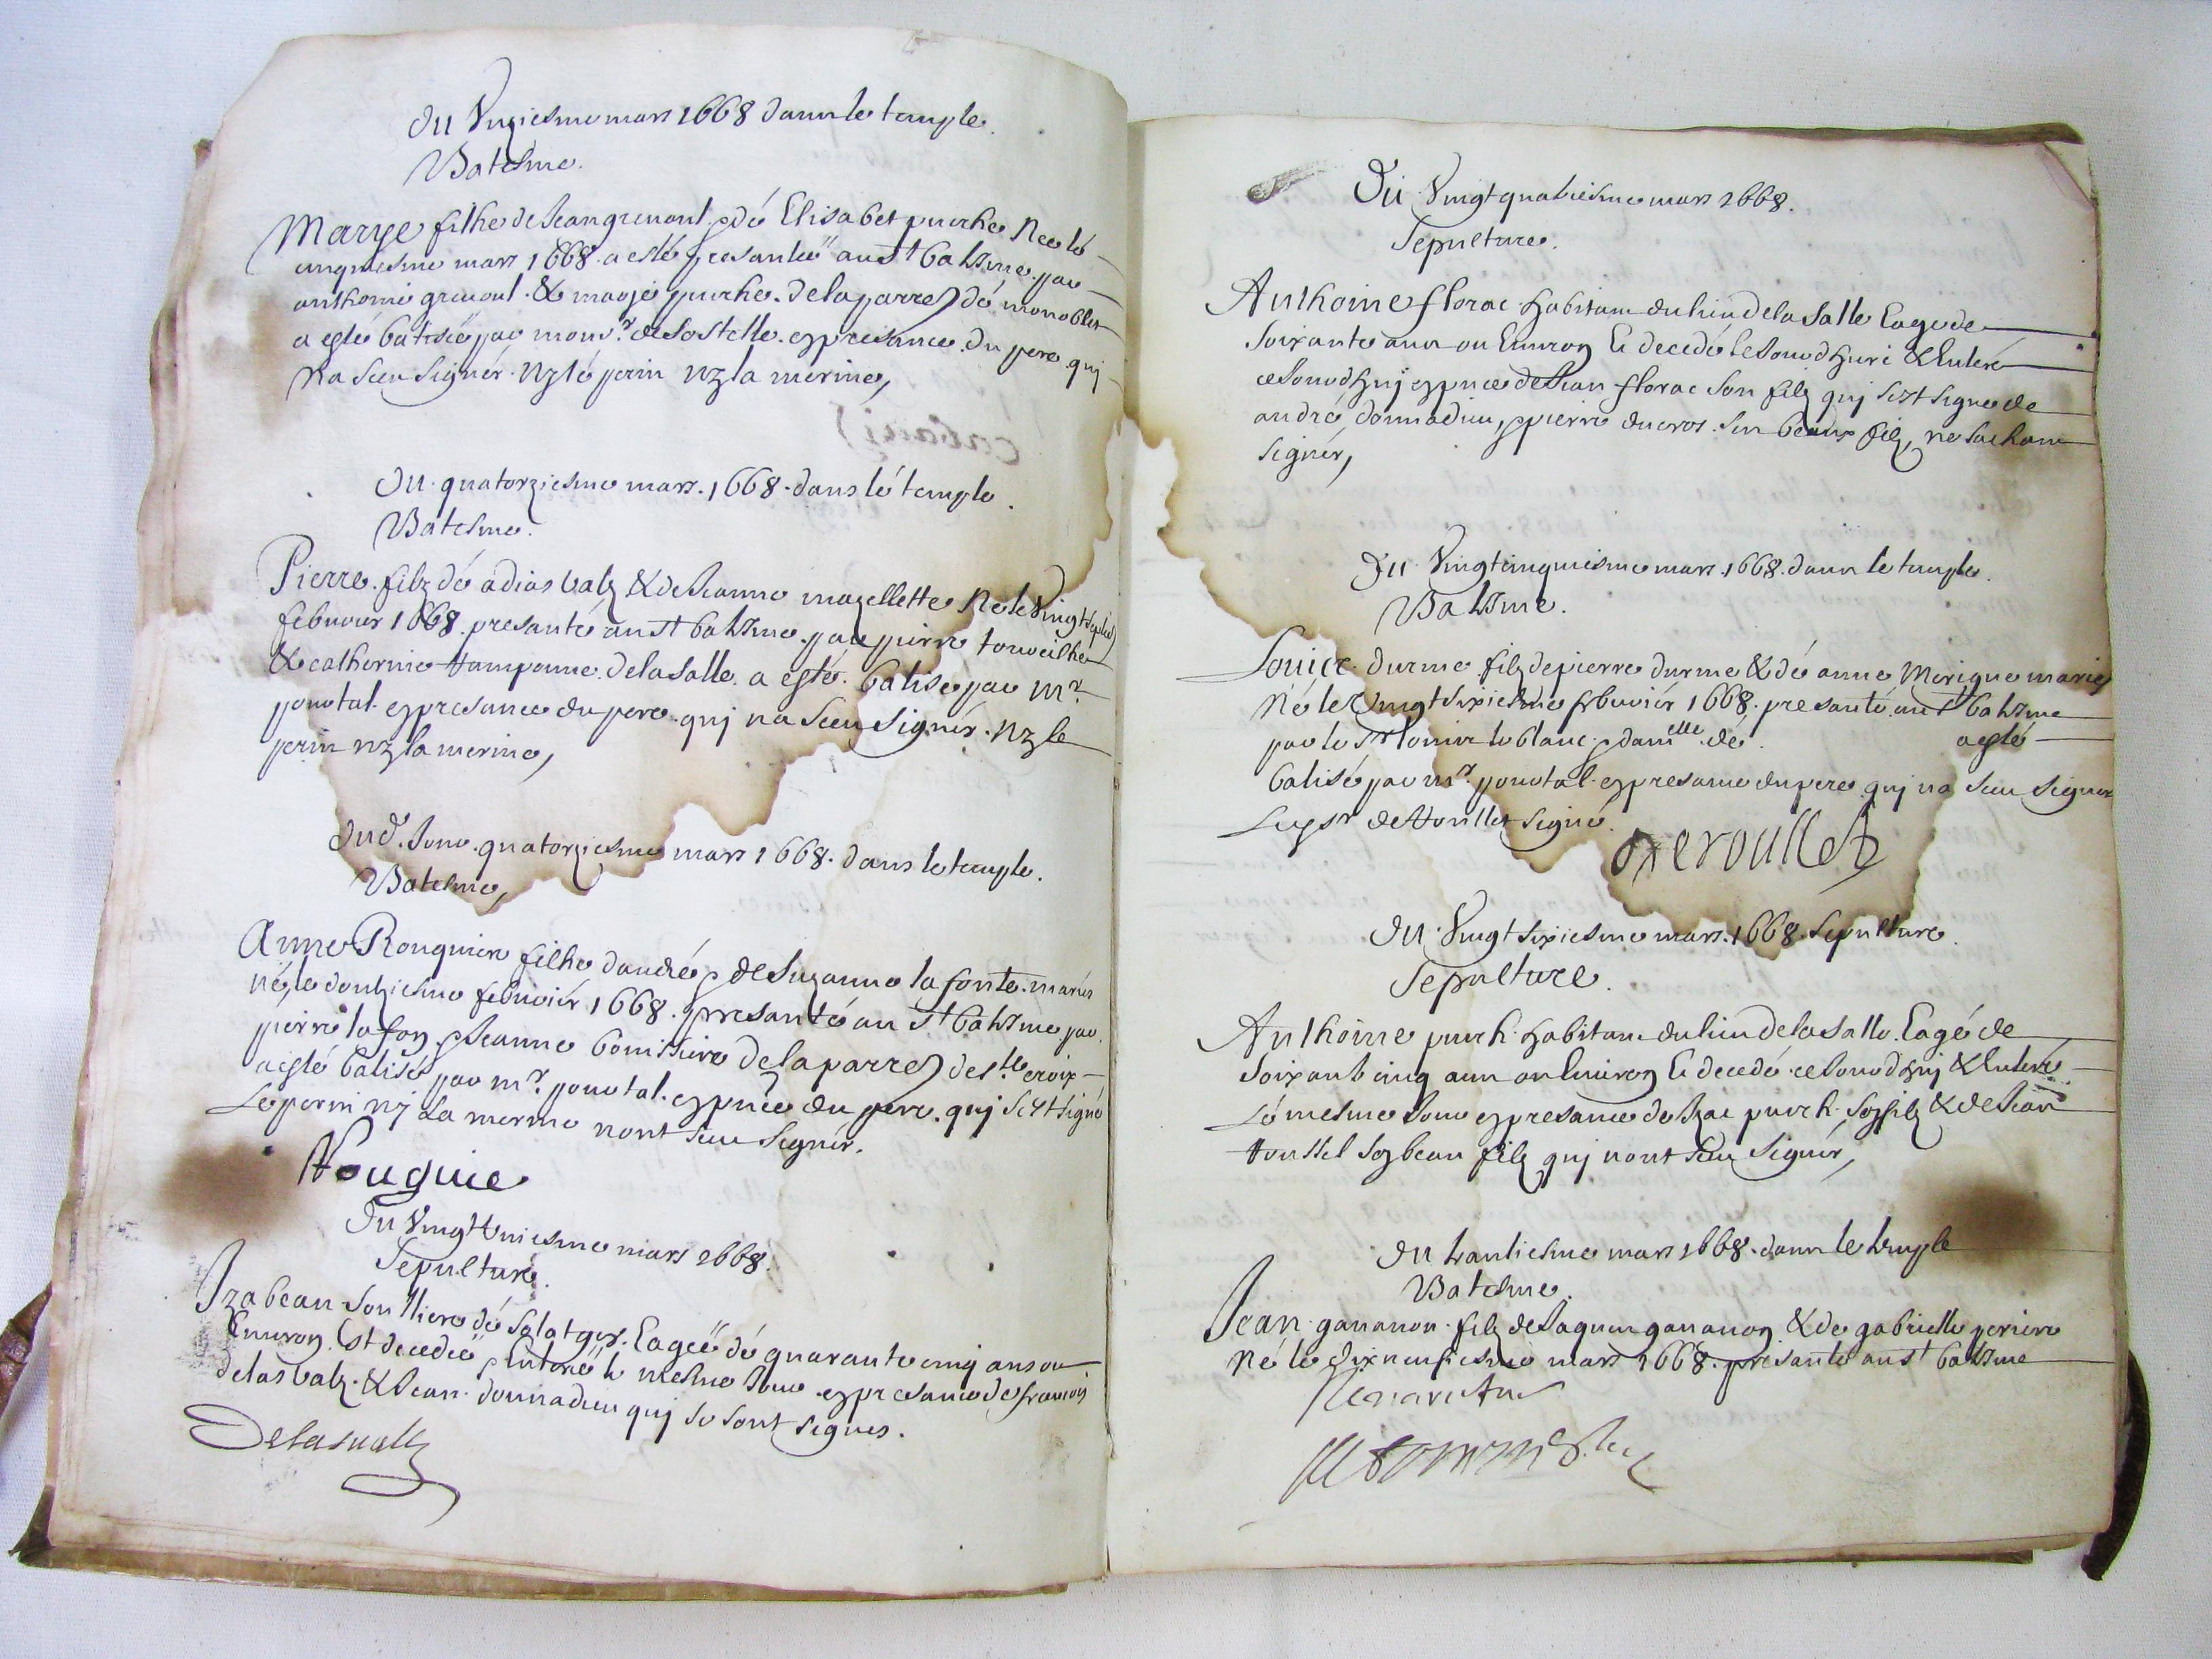 Du Vngiesme mars 1668 dans le temple.
Batesme.
Marye filhe de Jean gremoul & dé Elisabet puerhe Nee lé
cinquiesme mars 1668 a esté presantée au St batesme par
anthoine greuoul & marye puerhe de la parre) dé monoblet
a esté batisée par monsr de Sostelle en presance du pere quj
na sceu signér nz lé perin nz la merine,
Du quatorziesme mars 1668 dans lé temple.
Batesme.
Pierre filz dé adias valz & de Jeanne mazellette Ne le Vingt
febuuier 1668 presanté au St batesme par pierre
& catherine tamponne de la salle a esté batisé par Mr
poustal en presance du pere quj na sceu signér nz le
perin nz la merine,
Dud. Jour quatorziesme mars 1668 dans le temple.
Batesme,
Anne Rouquier filhe d'andré & de Suzanne la fonte mariés
né le douziesme febuuiér 1668 presanté au St batesme par
pierre lafon & Jeanne bouissiere de la parre) de ste croix
a esté batisé par mr poustal en pnce du pere quj sest signé
Le perin nj La merine nont sceu signér.
Rouquie
Du Vingt Vniesme mars 1668.
Sepulture.
Izabeau Soulliere dé salatges Eageé dé quarante cinq ans ou
Enuiron Est decedeé & Enterreé le mesme Jour en presance de francois
delasvalz & Jean donnadieu quj se sont signes.
Delasvalz
Du Vingt quatriesme mars 1668.
Sepulture.
Anthoine florac habitant du lieu de la Salle Eagé de
soixante ans ou Enuiron Et decedé ce Jourdhuri & Enterré
ce Jourdhuj en pnce de Jean florac son filz quj sest signe de
andré donnadieu, & pierre ducros son beaux filz, ne sachant
signér,
Du Vingt cinquiesme mars 1668 dans le temple.
Batesme.
Louice durme filz de pierre durme & dé anne Merigue mariés
Né le Vingt sixiesme febuuiér 1668 presanté au St batesme
par le sr louis le blanc & damelle dé a esté
batisé par mr poustal en presance du pere quj na sceu signer
Leysr de Roullet signé.
deroullet
Du Vingt sixiesme mars 1668 Sepulture.
Sepulture.
Anthoine puech habitant du lieu de la Salle Eagé de
soixante cinq ans ou Enuiron Et decedé ce Jourdhuj & Enterré
Lé mesme Jour en presance de Izac puech son filz & de Jean
Roussel son beau filz quj nont sceu signér,
Du trantiesme mars 1668 dans le temple
Batesme.
Jean gananon filz de Jaques gananon & de gabrielle periere
Né le dixneufiesme mars 1668 presanté au St batesme